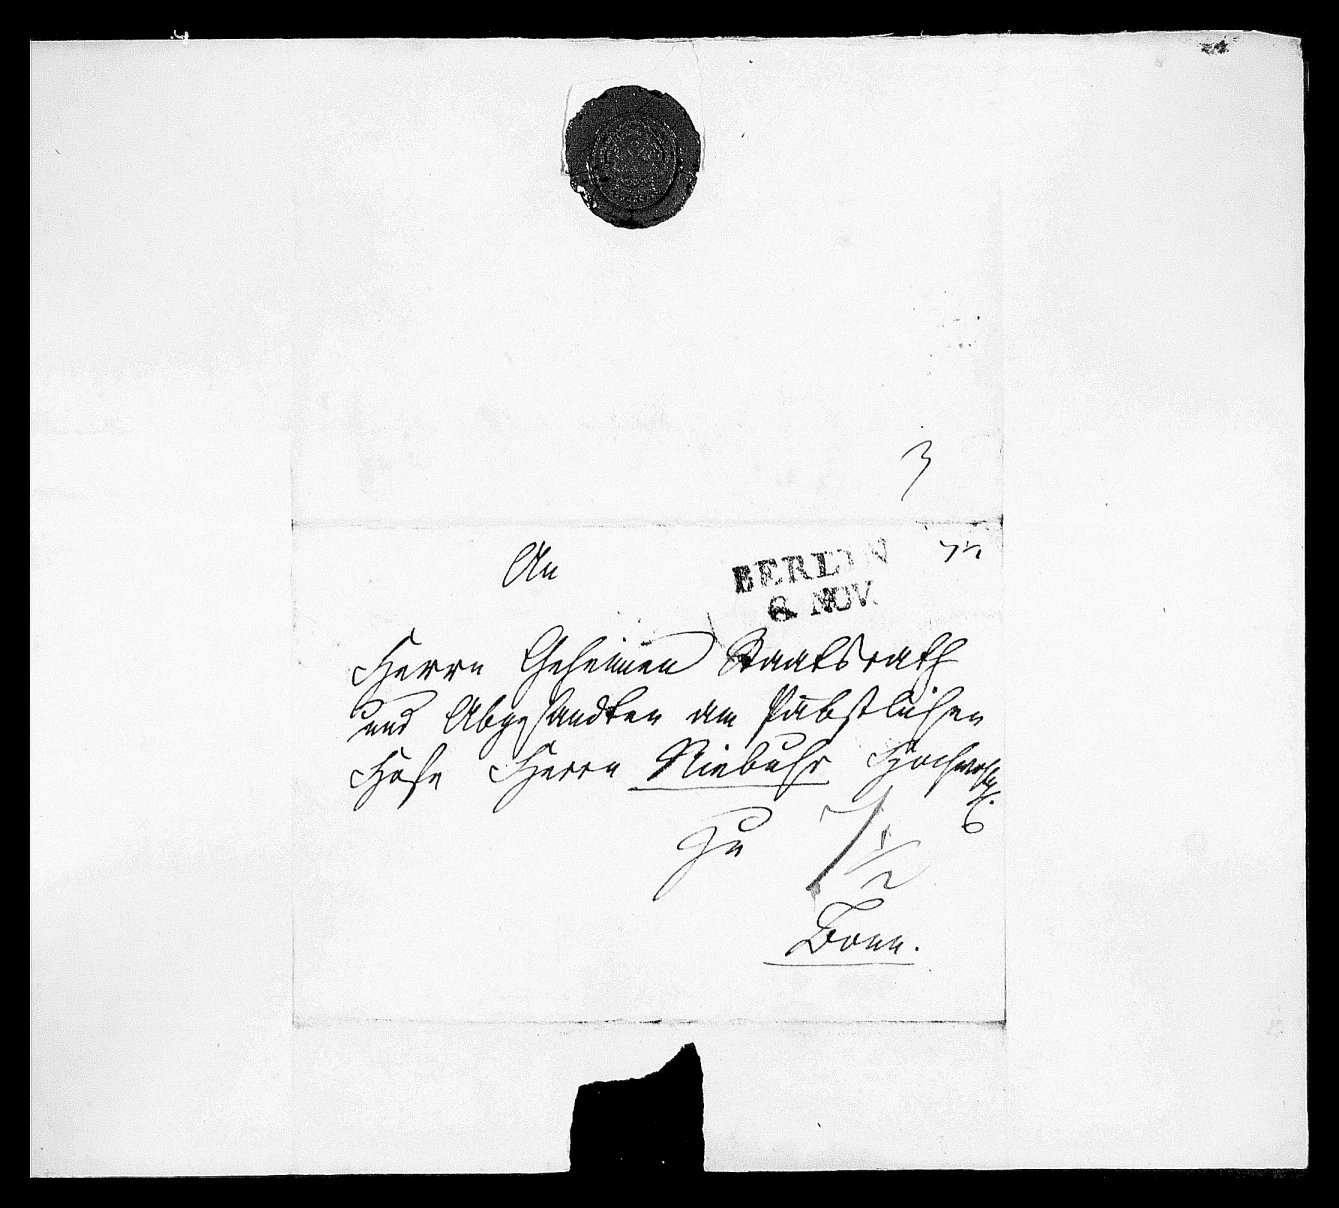 3
An
BERLIN
6. NOV.
Herrn Geheimen Staatsrath
und Abgesandten am Päbstlichen
Hofe Herrn Niebuhr Hochwohlg.
zu
7 1/2
Bonn.